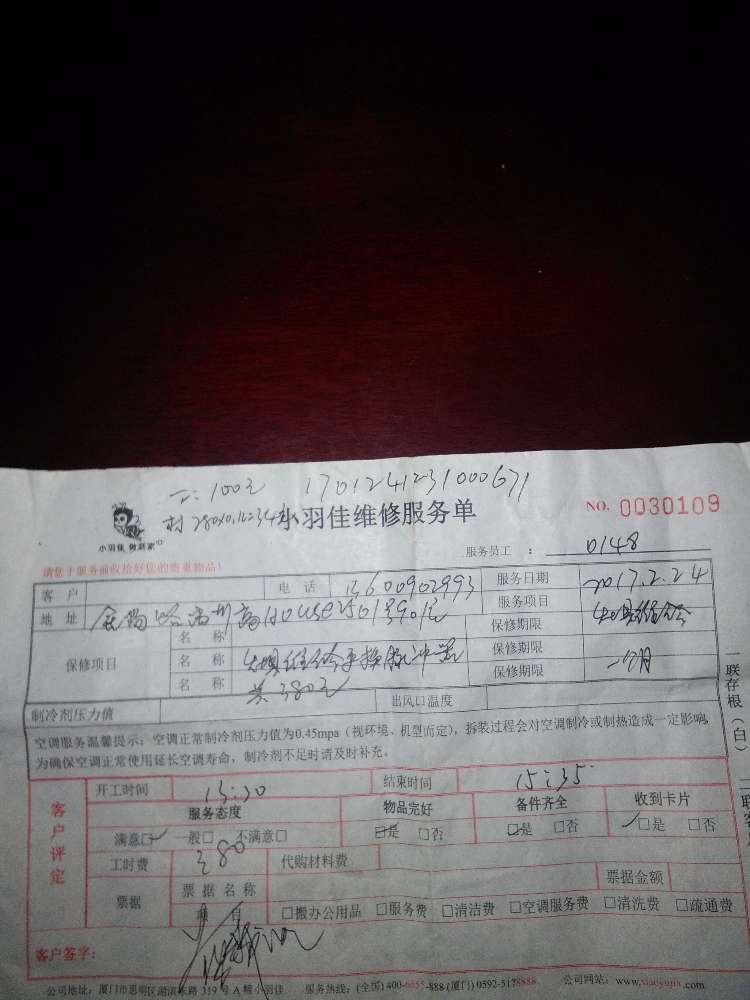 工：100元 1701241231000671
材 280×0.12=34
小羽佳 做到家
小羽佳维修服务单
NO. 0030109
服务员工： 0148
请您于服务前收拾好您的贵重物品！
客户 电话 13600903993 服务日期 2017.2.24
地址 服务项目
保修项目 名称 保修期限
名称 保修期限
名称 共380元 保修期限 一个月
制冷剂压力值 出风口温度
空调服务温馨提示：空调正常制冷剂压力值为0.45mpa（视环境、机型而定），拆装过程会对空调制冷或制热造成一定影响，
为确保空调正常使用延长空调寿命，制冷剂不足时请及时补充。
一联存根（白）
客户评定
开工时间 15:30 结束时间 15:35
服务态度 物品完好 备件齐全 收到卡片
满意□ 一般□ 不满意□ □是 □否 □是 □否 □是 □否
工时费 380 代购材料费
票据 票据名称 票据金额
项目 □搬办公用品 □服务费 □清洁费 □空调服务费 □清洗费 □疏通费
客户签字：
公司地址：厦门市思明区湖滨东路 319 号 A 幢小羽佳 服务热线：(全国) 400-6655-888 (厦门) 0592-5178888 公司网站：www.xiaoyujia.com